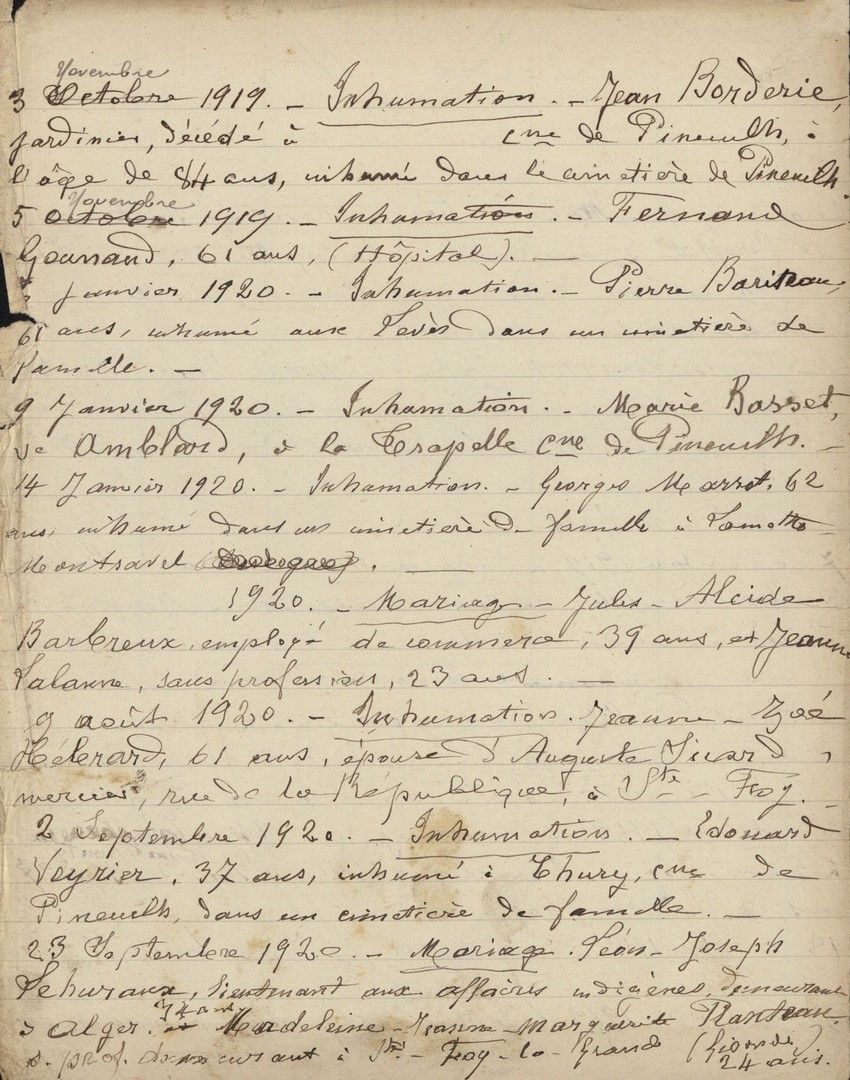 Novembre
3 Octobre 1919. - Inhumation. - Jean Borderie,
jardinier, décédé à cne de Pineuilh, à
l'âge de 84 ans, inhumé dans le cimetière de Pineuilh.
Novembre
5 Octobre 1919. - Inhumation. - Fernand
61 ans, (Hôpital). -
Janvier 1920. - Inhumation. - Pierre
61 ans, inhumé aux Lèves dans un cimetière de
famille. -
9 Janvier 1920. - Inhumation. - Marie Basset,
ve Amblard, à la Trapelle cne de Pineuilh. -
14 Janvier 1920. - Inhumation. - Georges 62
ans, inhumé dans un cimetière de famille à Lamothe-
Montravel
1920. - Mariage - Jules - Alcide
Barbreux, employé de commerce, 39 ans, et Jeanne
Lalanne, sans profession, 23 ans. -
9 août 1920. - Inhumation. Jeanne - Zoé
61 ans, épouse d'Auguste Sicard,
mercier, rue de la République, à Ste - Foy. -
2 Septembre 1920. - Inhumation. - Edouard
Veyrier, 37 ans, inhumé à Thury, cne de
Pineuilh, dans un cimetière de famille. -
23 Septembre 1920. - Mariage. Léon - Joseph
Lehuraux, lieutenant aux affaires indigènes, demeurant
34 ans
à Alger. et Madeleine - Jeanne - Marguerite
s. prof. demeurant à Ste - Foy - la - Grande (Gironde)
24 ans.